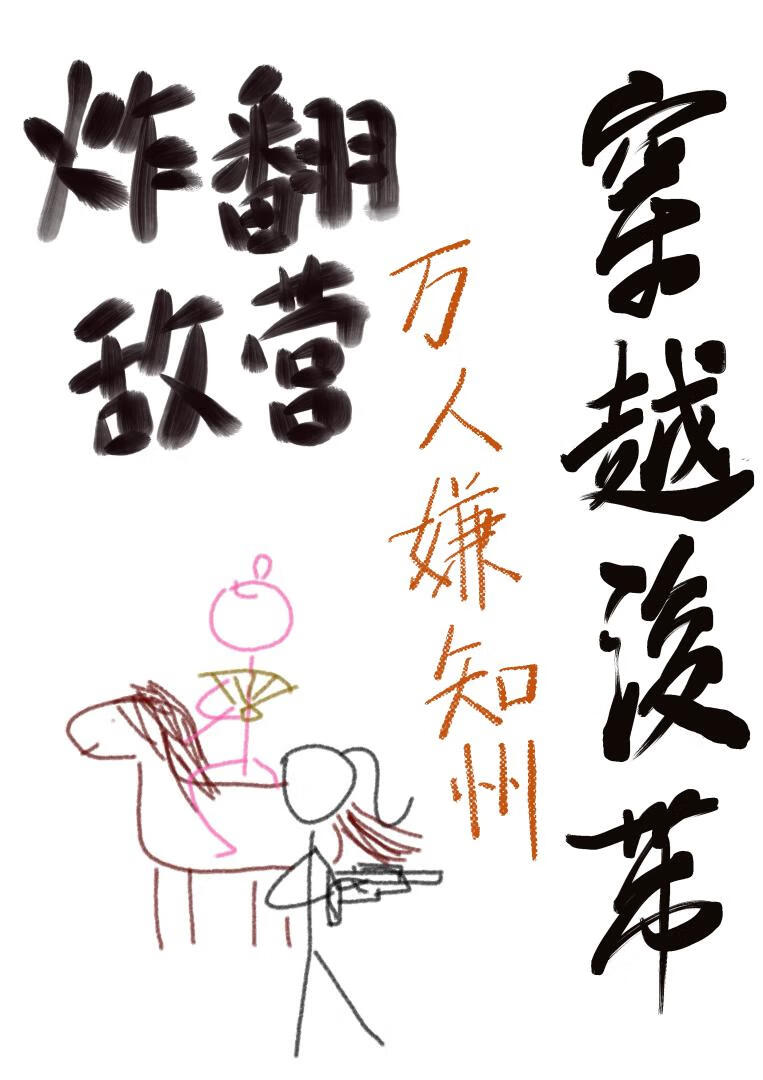 穿越後带
万人嫌知州
炸翻
敌营